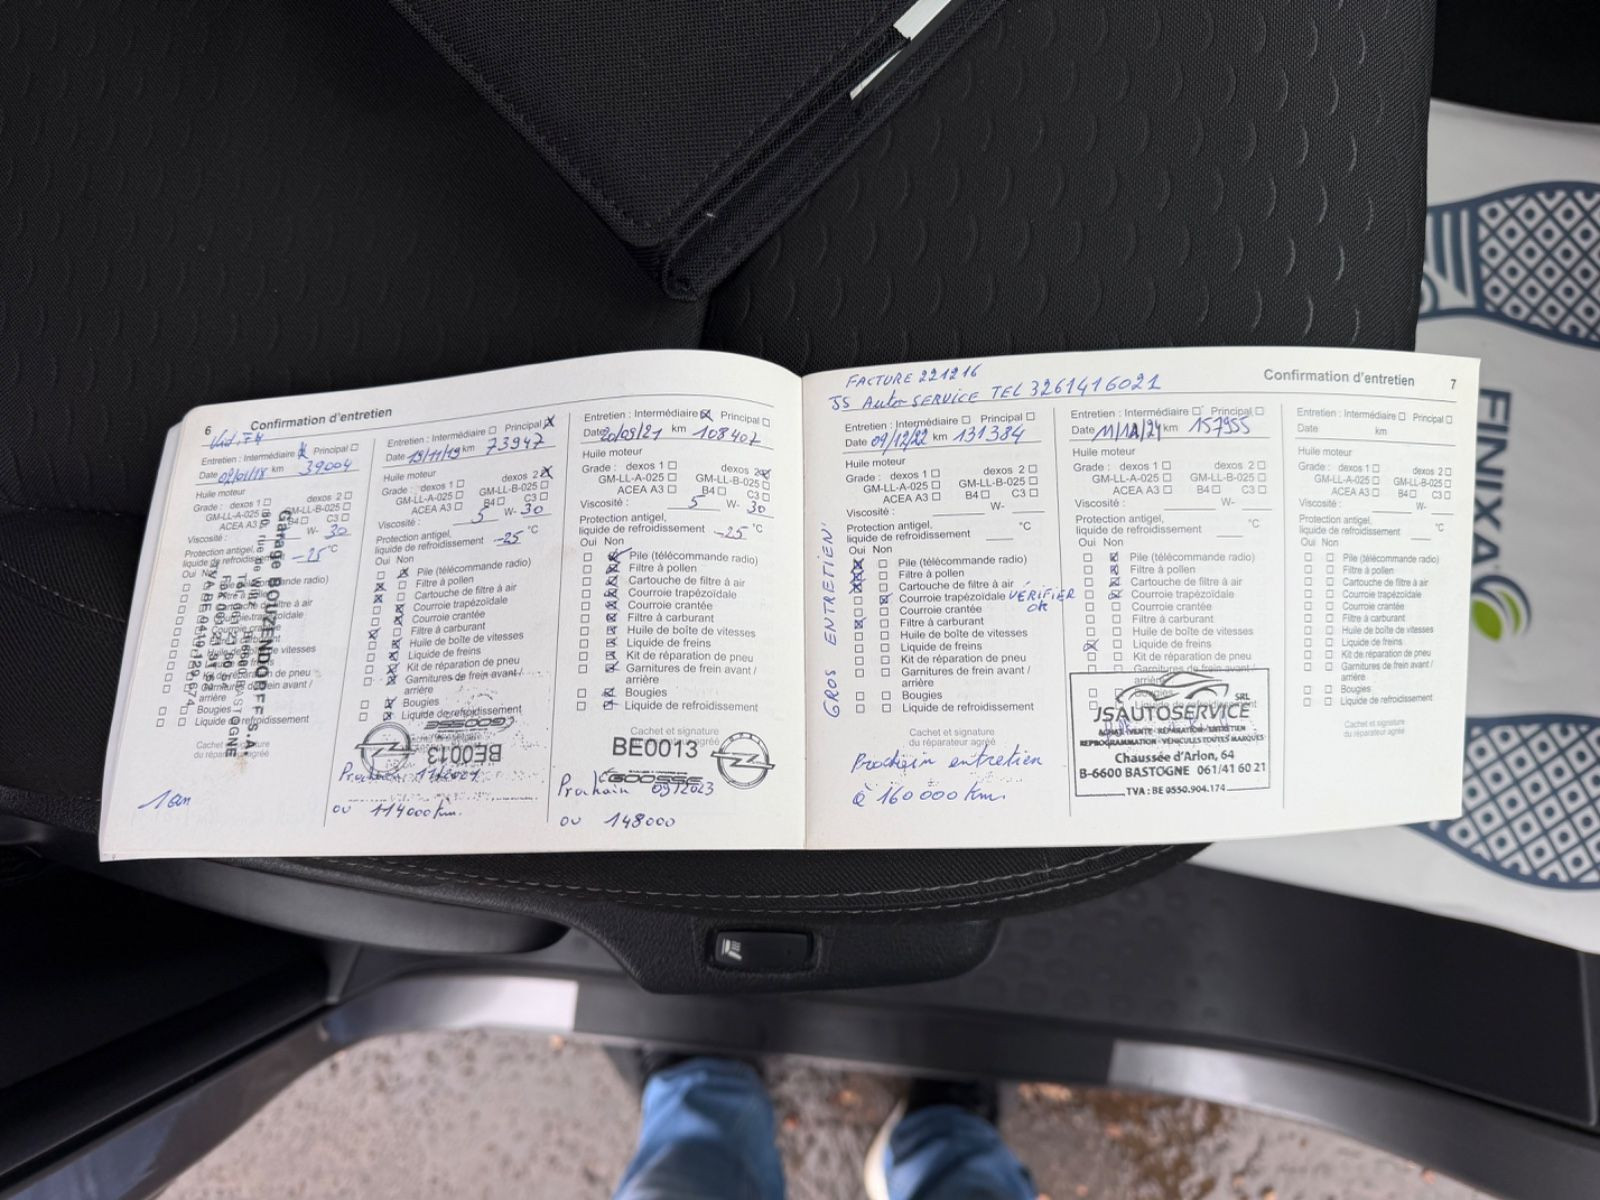 6 Confirmation d'entretien
Entretien : Intermédiaire Principal
Date 02/01/18 km 39004
Huile moteur
Grade : dexos 1 dexos 2
GM-LL-A-025 GM-LL-B-025
ACEA A3 B4 C3
Viscosité : W- 30
Protection antigel,
liquide de refroidissement -25 °C
Oui Non
Garage BOUZENDORFF S.A.
arrière
Bougies
Liquide de refroidissement
Cachet et signature
du réparateur agréé
1 an
Entretien : Intermédiaire Principal
Date 19/11/19 km 73947
Huile moteur
Grade : dexos 1 dexos 2
GM-LL-A-025 GM-LL-B-025
ACEA A3 B4 C3
Viscosité : 5 W- 30
Protection antigel,
liquide de refroidissement -25 °C
Oui Non
Pile (télécommande radio)
Filtre à pollen
Cartouche de filtre à air
Courroie trapézoïdale
Courroie crantée
Filtre à carburant
Huile de boîte de vitesses
Liquide de freins
Kit de réparation de pneu
Garnitures de frein avant /
arrière
Bougies
Liquide de refroidissement
GOOSSE
BE0013
Prochain 11/2021
ou 114000 km.
Entretien : Intermédiaire Principal
Date 20/09/21 km 108407
Huile moteur
Grade : dexos 1 dexos 2
GM-LL-A-025 GM-LL-B-025
ACEA A3 B4 C3
Viscosité : 5 W- 30
Protection antigel,
liquide de refroidissement -25 °C
Oui Non
Pile (télécommande radio)
Filtre à pollen
Cartouche de filtre à air
Courroie trapézoïdale
Courroie crantée
Filtre à carburant
Huile de boîte de vitesses
Liquide de freins
Kit de réparation de pneu
Garnitures de frein avant /
arrière
Bougies
Liquide de refroidissement
Cachet et signature
du réparateur agréé
BE0013
GOOSSE
Prochain 09/2023
ou 148000
Confirmation d'entretien 7
FACTURE 221216
JS Auto SERVICE TEL 3261416021
Entretien : Intermédiaire Principal
Date 09/12/22 km 131384
Huile moteur
Grade : dexos 1 dexos 2
GM-LL-A-025 GM-LL-B-025
ACEA A3 B4 C3
Viscosité : W-
Protection antigel,
liquide de refroidissement °C
Oui Non
Pile (télécommande radio)
Filtre à pollen
Cartouche de filtre à air
Courroie trapézoïdale VERIFIER
Courroie crantée OK
Filtre à carburant
Huile de boîte de vitesses
Liquide de freins
Kit de réparation de pneu
Garnitures de frein avant /
arrière
Bougies
Liquide de refroidissement
GROS ENTRETIEN
Cachet et signature
du réparateur agréé
Prochain entretien
à 160 000 km.
Entretien : Intermédiaire Principal
km 157955
Huile moteur
Grade : dexos 1 dexos 2
GM-LL-A-025 GM-LL-B-025
ACEA A3 B4 C3
Viscosité : W-
Protection antigel,
liquide de refroidissement °C
Oui Non
Pile (télécommande radio)
Filtre à pollen
Cartouche de filtre à air
Courroie trapézoïdale
Courroie crantée
Filtre à carburant
Huile de boîte de vitesses
Liquide de freins
Kit de réparation de pneu
Garnitures de frein avant /
arrière
SRL
JSAUTOSERVICE
ACHAT - VENTE - RÉPARATION - ENTRETIEN
REPROGRAMMATION - VÉHICULES TOUTES MARQUES
Chaussée d'Arlon, 64
B-6600 BASTOGNE 061/41 60 21
TVA : BE 0550.904.174
Entretien : Intermédiaire Principal
Date km
Huile moteur
Grade : dexos 1 dexos 2
GM-LL-A-025 GM-LL-B-025
ACEA A3 B4 C3
Viscosité : W-
Protection antigel,
liquide de refroidissement °C
Oui Non
Pile (télécommande radio)
Filtre à pollen
Cartouche de filtre à air
Courroie trapézoïdale
Courroie crantée
Filtre à carburant
Huile de boîte de vitesses
Liquide de freins
Kit de réparation de pneu
Garnitures de frein avant /
arrière
Bougies
Liquide de refroidissement
Cachet et signature
du réparateur agréé
FINIXA